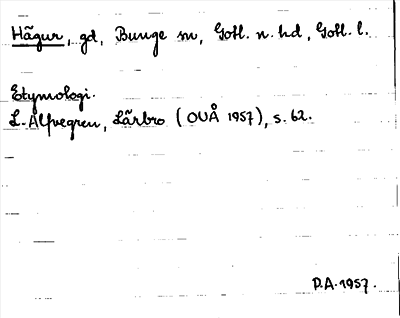 Hägur, gd, Bunge sn, Gotl. n. hd, Gotl. l.
Etymologi.
L. Alfvegren, Lärbro (OUÅ 1957), s. 62.
D.A. 1957.